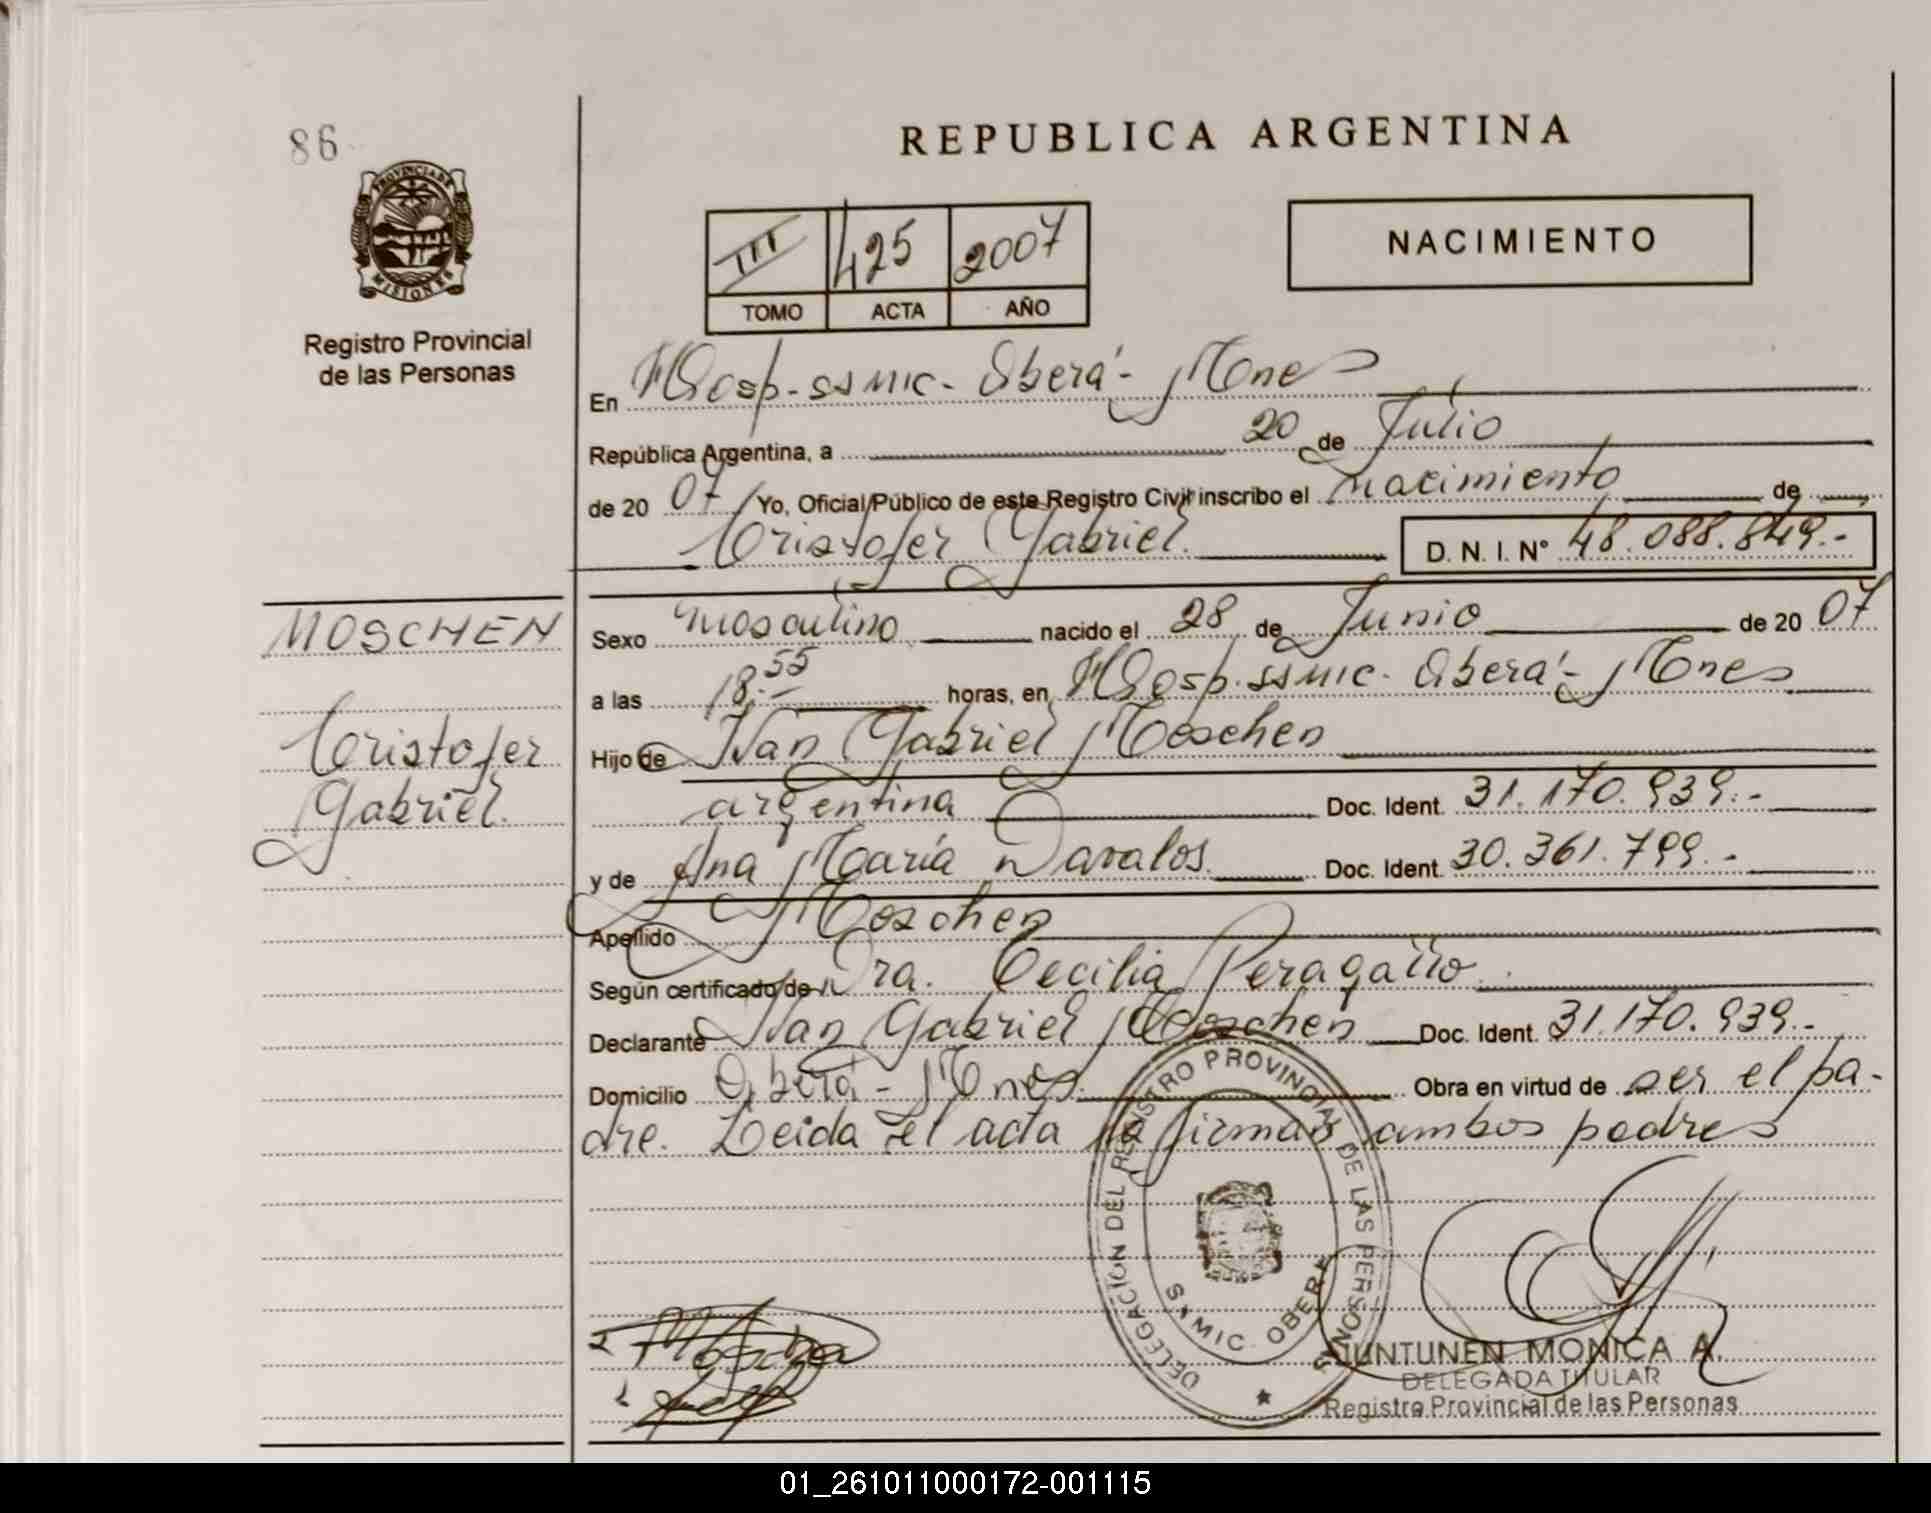 86
PROVINCIA DE
MISIONES
Registro Provincial
de las Personas
REPUBLICA ARGENTINA
III 425 2007
TOMO ACTA AÑO
NACIMIENTO
En Hosp. SSMIC - Oberá - Mnes
República Argentina, a 20 de Julio
de 20 07 Yo, Oficial Público de este Registro Civil inscribo el nacimiento de
Cristofer Gabriel. D. N. I. Nº 48.088.849.-
MOSCHEN
Cristofer
Gabriel.
Sexo masculino nacido el 28 de Junio de 20 07
a las 18.55 horas, en Hosp. SSMIC - Oberá - Mnes
Hijo de Ivan Gabriel Moschen
argentina Doc. Ident. 31.170.939.-
y de Ana María Davalos. Doc. Ident. 30.361.799.-
Apellido Moschen
Según certificado de Dra. Cecilia Peragallo
Declarante Ivan Gabriel Moschen Doc. Ident. 31.170.939.-
Domicilio Oberá - Mnes. Obra en virtud de ser el pa-
dre. Leida el acta la firman ambos padres
DELEGACION DEL REGISTRO PROVINCIAL DE LAS PERSONAS
S.S.MIC. OBERA
JUNTUNEN MONICA A.
DELEGADA TITULAR
Registro Provincial de las Personas
01_261011000172-001115